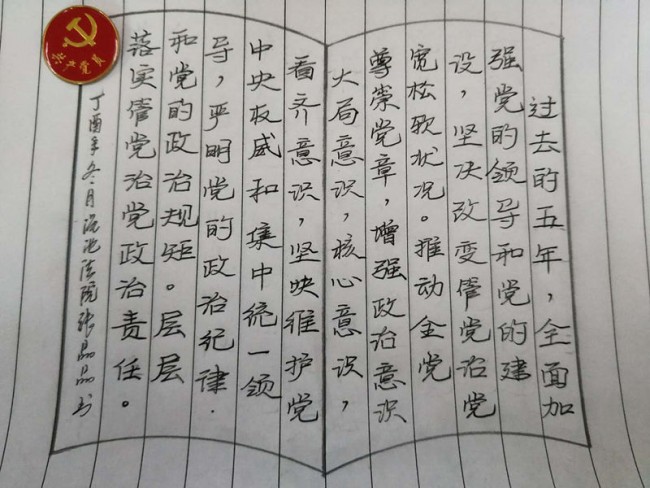 过去的五年，全面加
强党的领导和党的建
设，坚决改变管党治党
宽松软状况。推动全党
尊崇党章，增强政治意识
大局意识，核心意识，
看齐意识，坚决维护党
中央权威和集中统一领
导，严明党的政治纪律.
和党的政治规矩。层层
落实管党治党政治责任。
丁酉年冬月渑池法院张晶晶书
共产党员